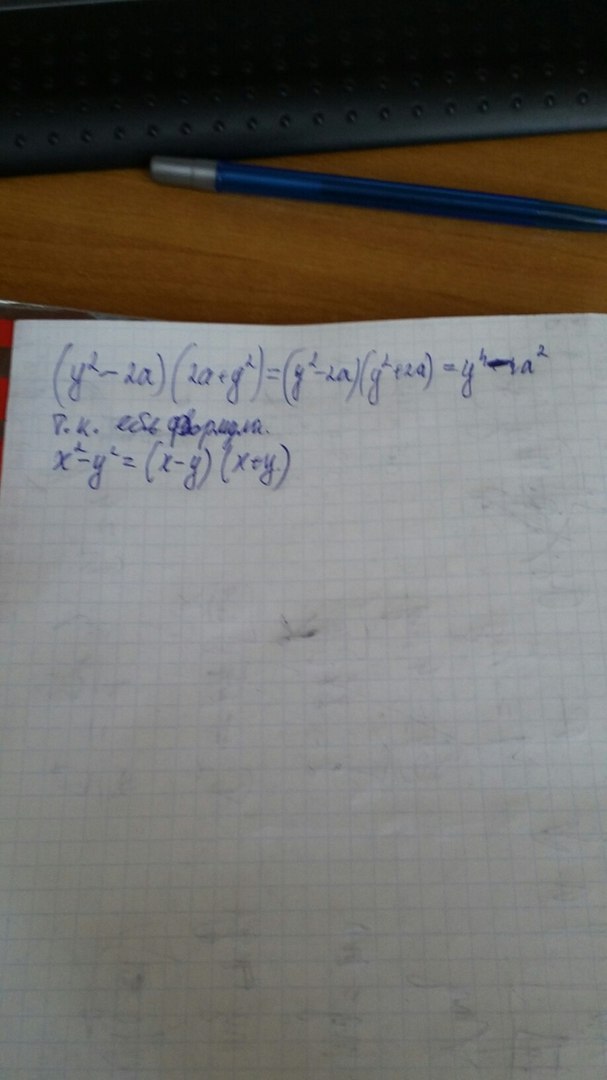 (y²-2a)(2a+y²)=(y²-2a)(y²+2a)=y⁴-4a²
т.к. есть формула.
x²-y²=(x-y)(x+y)